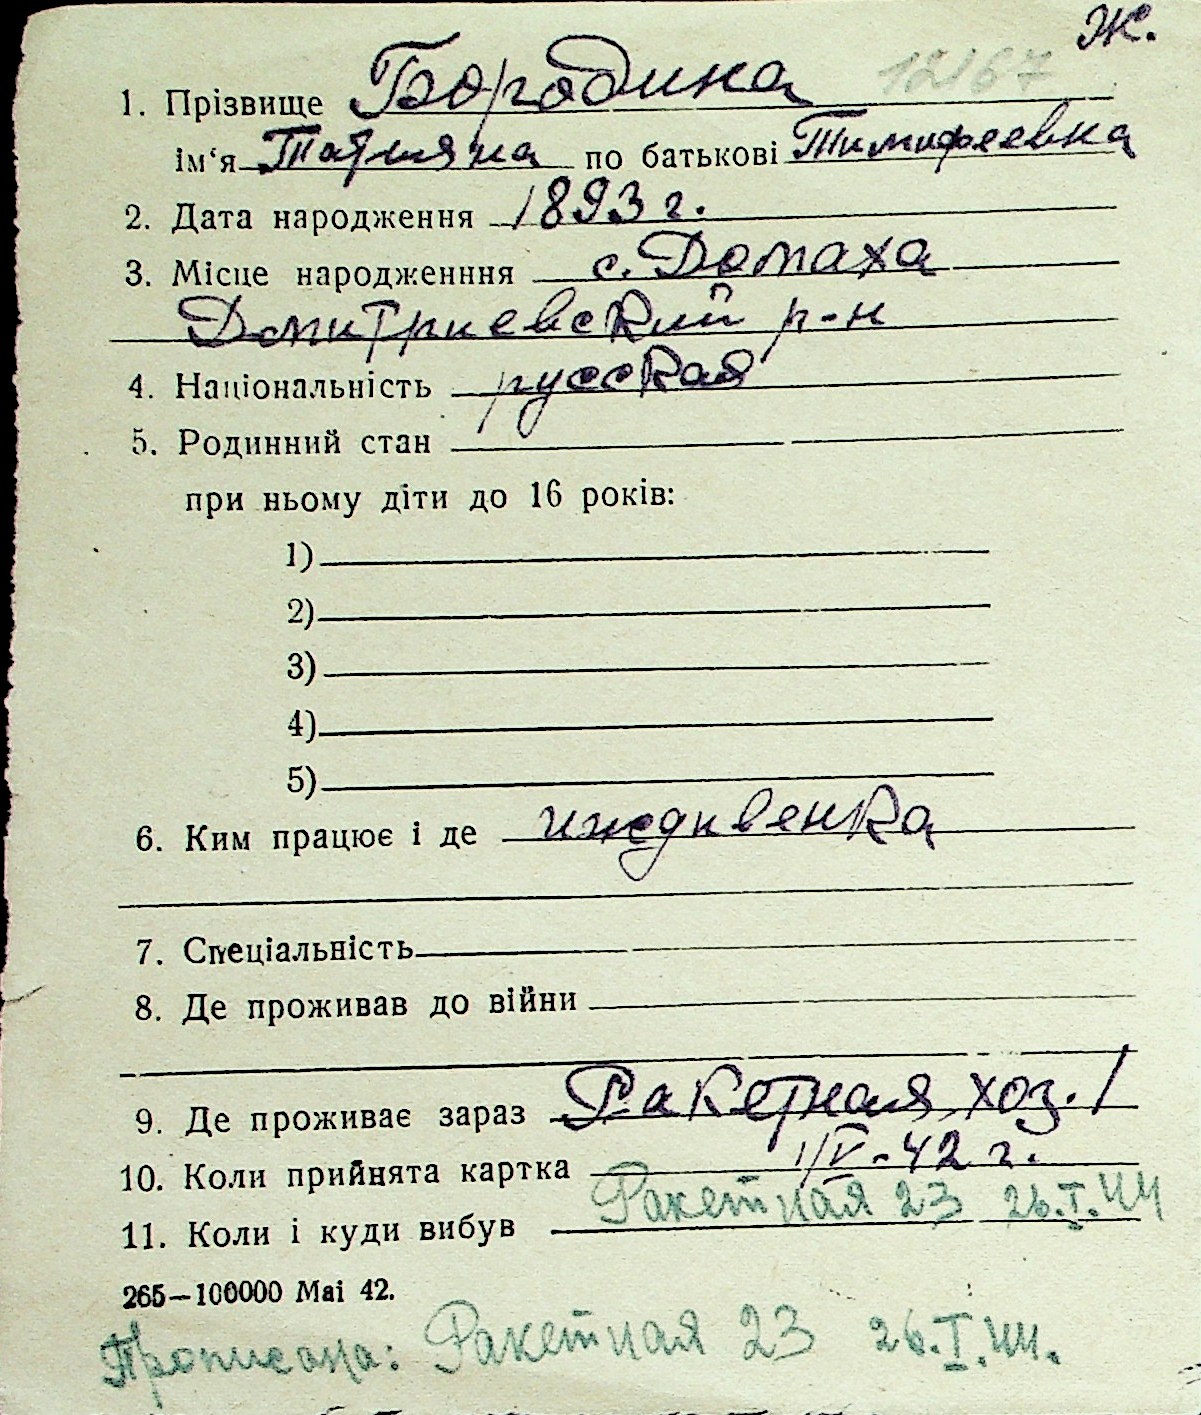 Ж.
12167
1. Прізвище Бородина
ім‘я Татьяна по батькові Тимофеевна
2. Дата народження 1893 г.
3. Місце народженння с. Домаха
Дмитриевский р-н
4. Національність русская
5. Родинний стан
при ньому діти до 16 років:
1)
2)
3)
4)
5)
6. Ким працює і де иждивенка
7. Спеціальність
8. Де проживав до війни
9. Де проживає зараз Ракетная, хоз. 1
10. Коли прийнята картка 1/V-42 г.
11. Коли і куди вибув Ракетная 23 26.I.44
265—100000 Mai 42.
Прописана: Ракетная 23 26.I.44.